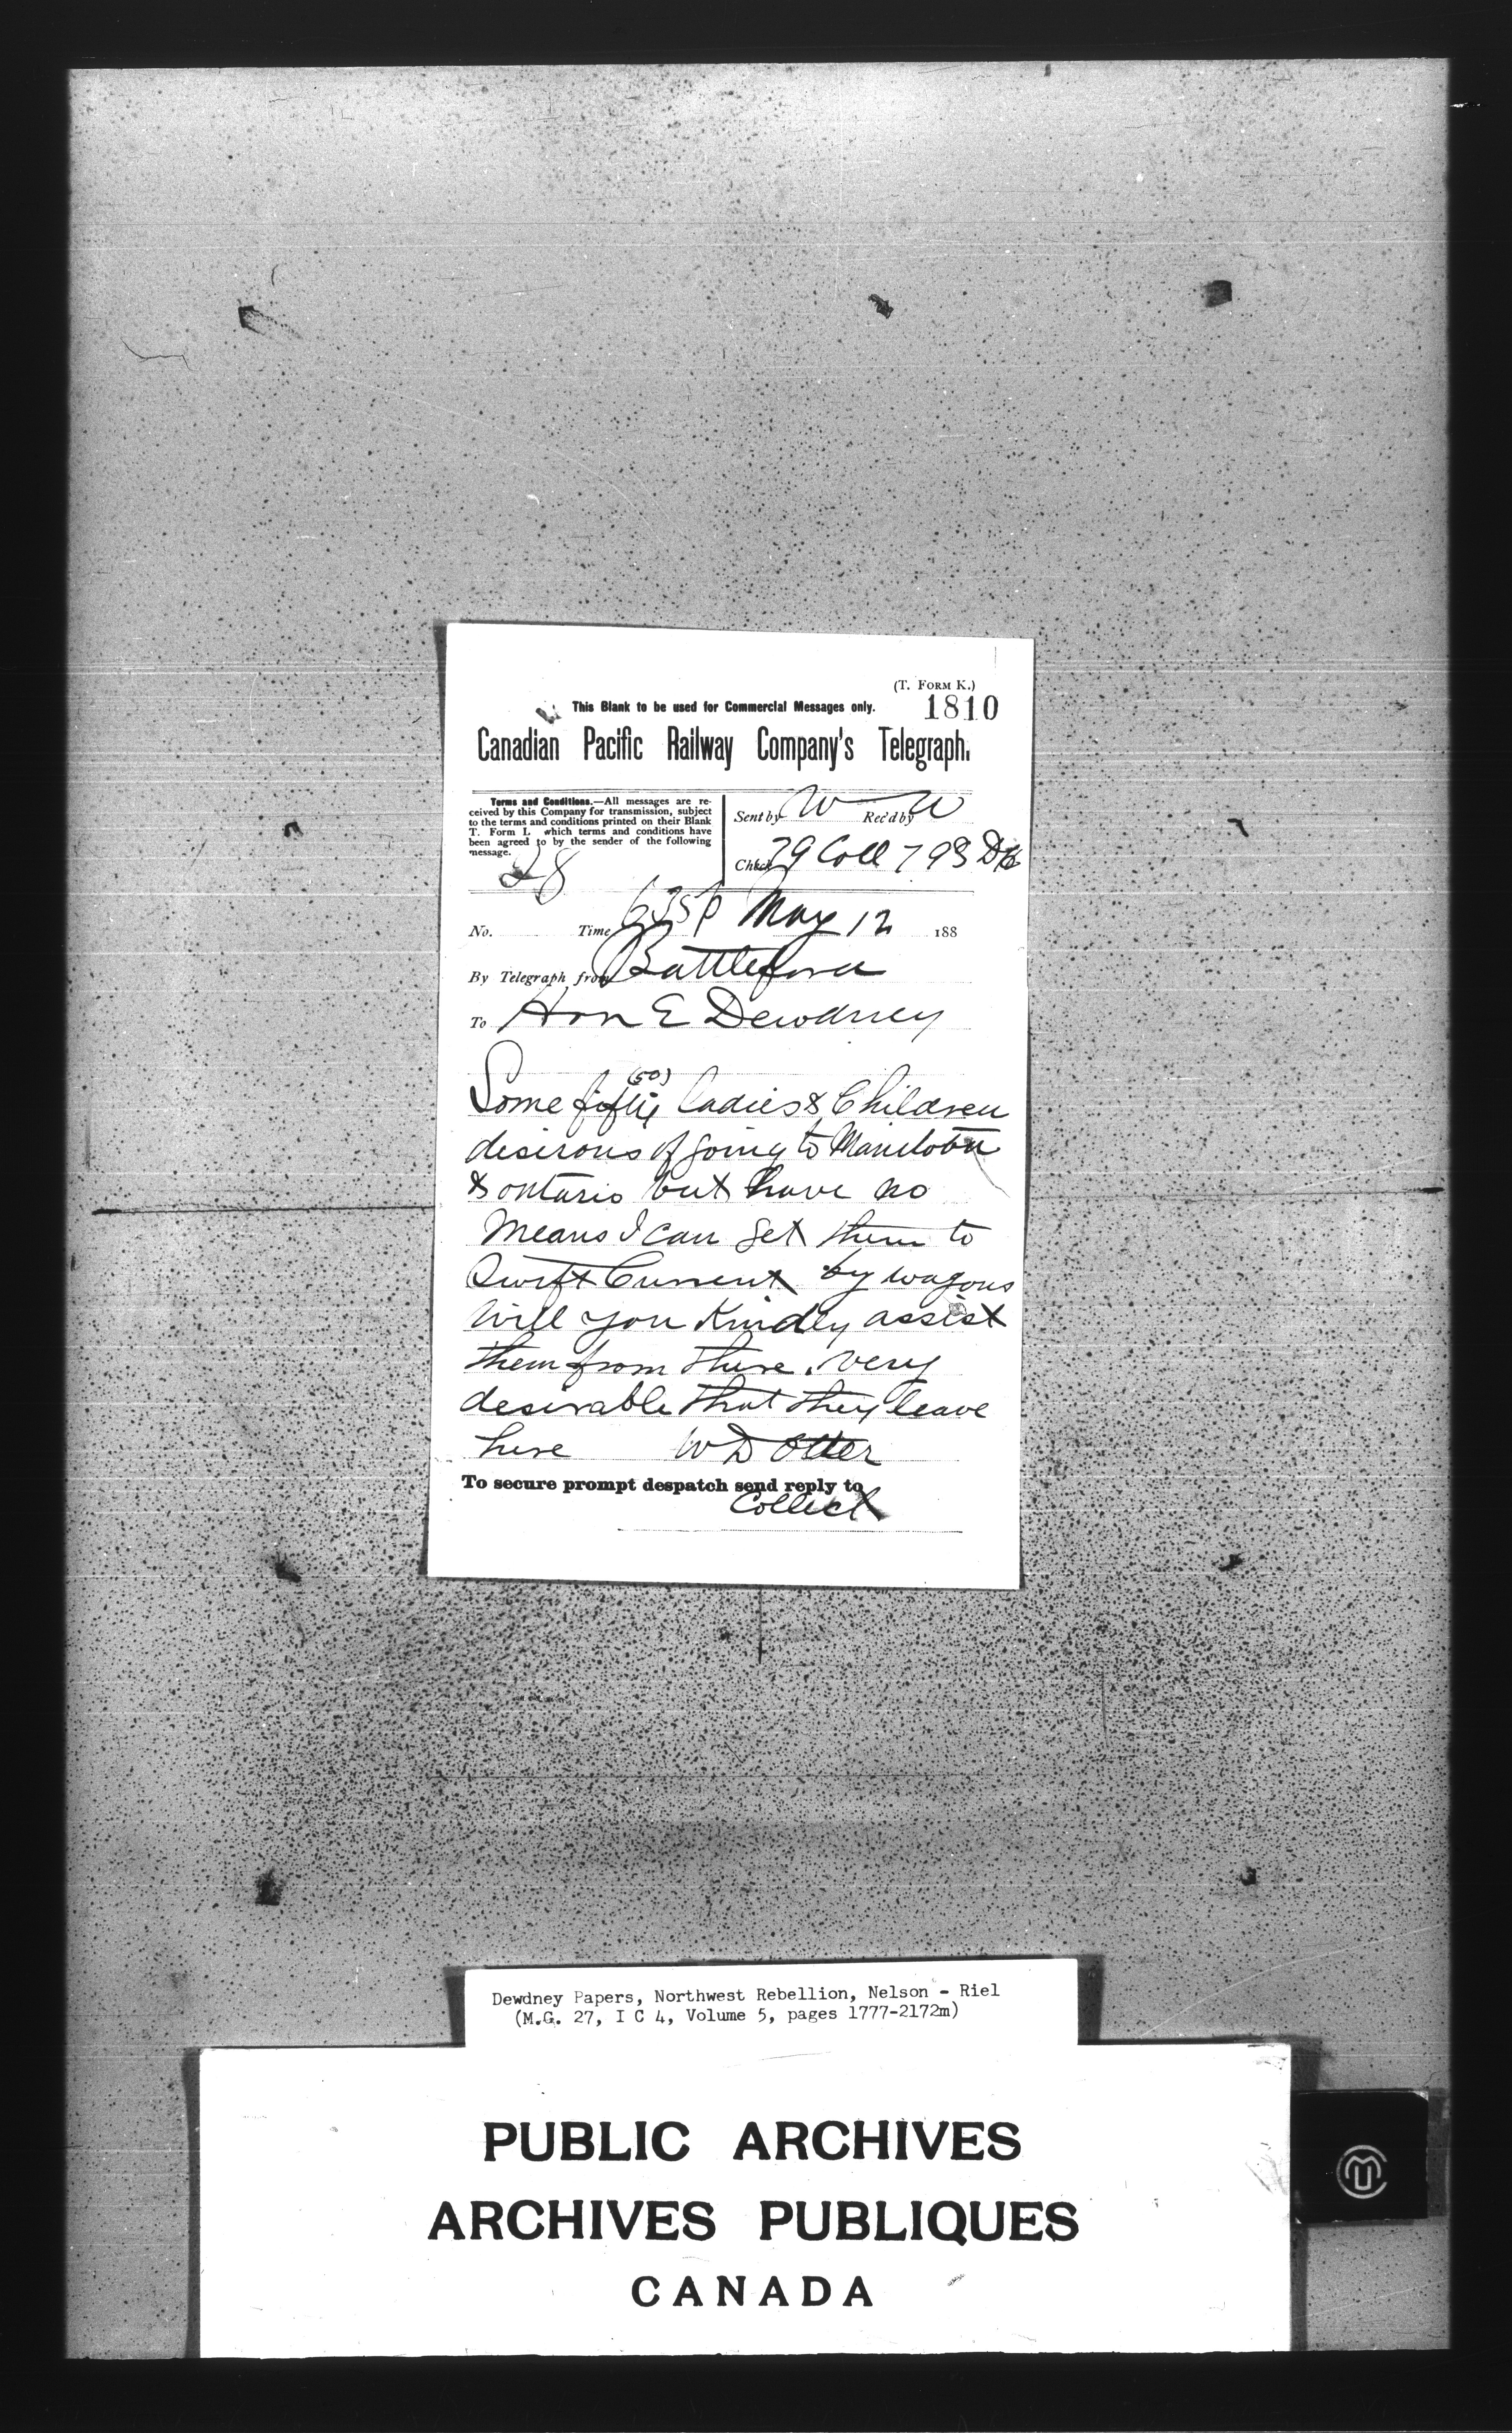 (T. FORM K.)
This Blank to be used for Commercial Messages only.
1810
Canadian Pacific Railway Company's Telegraph.
Terms and Conditions.—All messages are re-
ceived by this Company for transmission, subject
to the terms and conditions printed on their Blank
T. Form L which terms and conditions have
been agreed to by the sender of the following
message.
28
Sent by W Rec'd by W
Check 79 Coll 793 DH
No. Time 635p May 12 188
By Telegraph from Battleford
To Hon E Dewdney
(50)
Some fifty ladies & Children
desirous of going to Manitoba
& ontario but have no
means I can get them to
Swift Current by wagons
will you Kindly assist
them from there. very
desirable that they leave
here W D Otter
To secure prompt despatch send reply to
Collect
Dewdney Papers, Northwest Rebellion, Nelson - Riel
(M.G. 27, I C 4, Volume 5, pages 1777-2172m)
PUBLIC ARCHIVES
ARCHIVES PUBLIQUES
CANADA